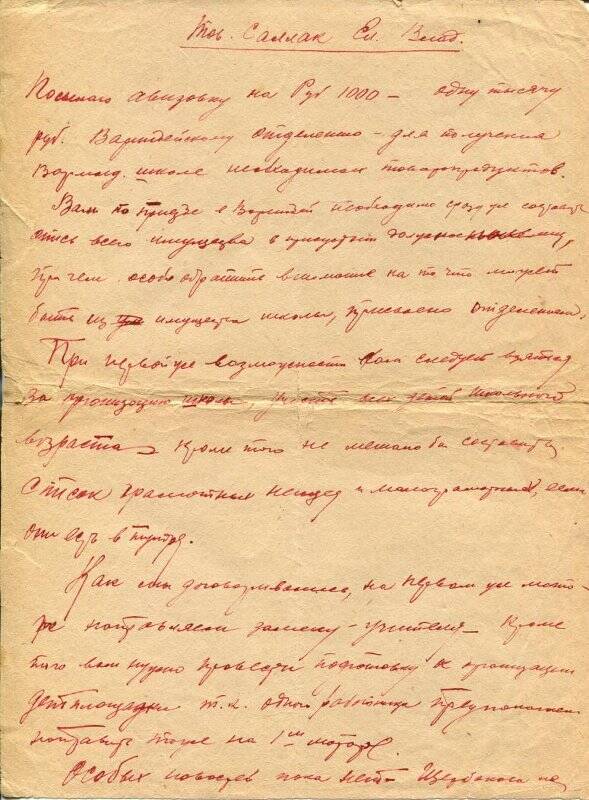 Тов. Саллак Ел. Влад.
Посылаю авизовку на Руб 1000 – одну тысячу
руб. Варнгдейскому отделению – для получения
школе необходимых товаропродуктов.
Вам по приезде в необходимо сразу же составить
опись всего имущества
при чем особо обратите внимание на то что может
быть из имущества школы, присвоено отделением.
При первой же возможности Вам следует взяться
за организацию школы, учесть всех детей школьного
возраста – Кроме того не мешало бы составить
список грамотных ненцев и малограмотных, если
они есть в пункте.
Как мы договаривались, на первом же мото-
ре направляем замену – учителя – Кроме
того вам нужно провести подготовку к организации
детплощадки т.к. одного работника предполагаем
направить тоже на 1ом моторе.
Особых новостей пока нет –